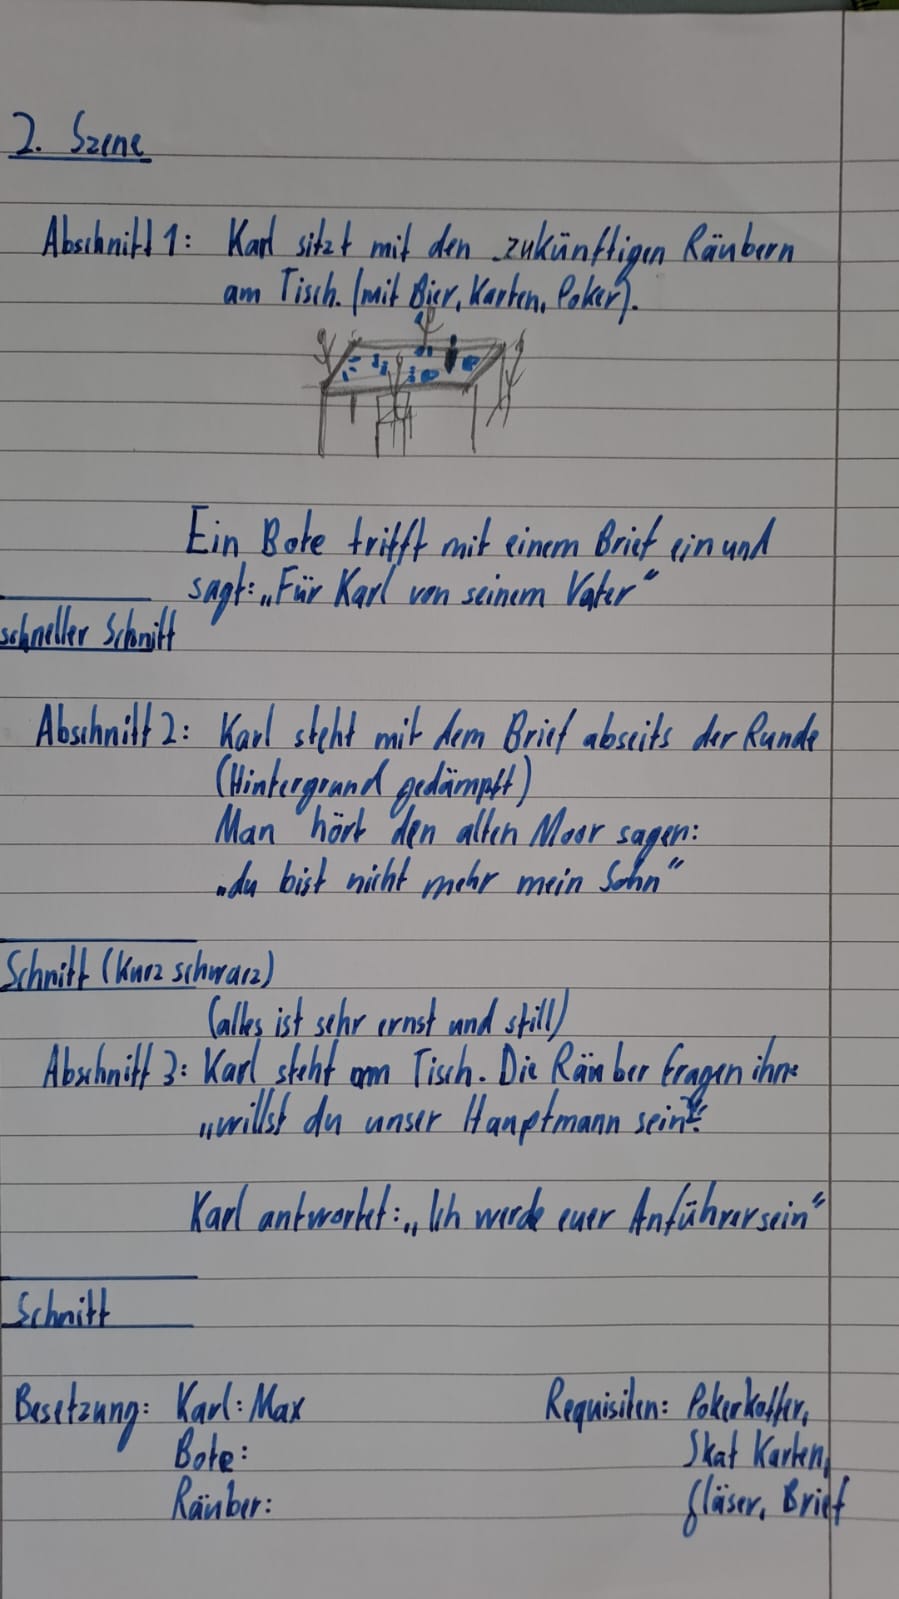 2. Szene
Abschnitt 1: Karl sitzt mit den zukünftigen Räubern
am Tisch. (mit Bier, Karten, Poker).
Ein Bote trifft mit einem Brief ein und
sagt: „Für Karl von seinem Vater"
schneller Schnitt
Abschnitt 2: Karl steht mit dem Brief abseits der Runde
(Hintergrund gedämpft)
Man hört den alten Moor sagen:
„du bist nicht mehr mein Sohn"
Schnitt (kurz schwarz)
(alles ist sehr ernst und still)
Abschnitt 3: Karl steht am Tisch. Die Räuber fragen ihn:
„willst du unser Hauptmann sein?"
Karl antwortet: „Ich werde euer Anführer sein"
Schnitt
Besetzung: Karl: Max Requisiten: Pokerkoffer,
Bote: Skat Karten,
Räuber: Gläser, Brief